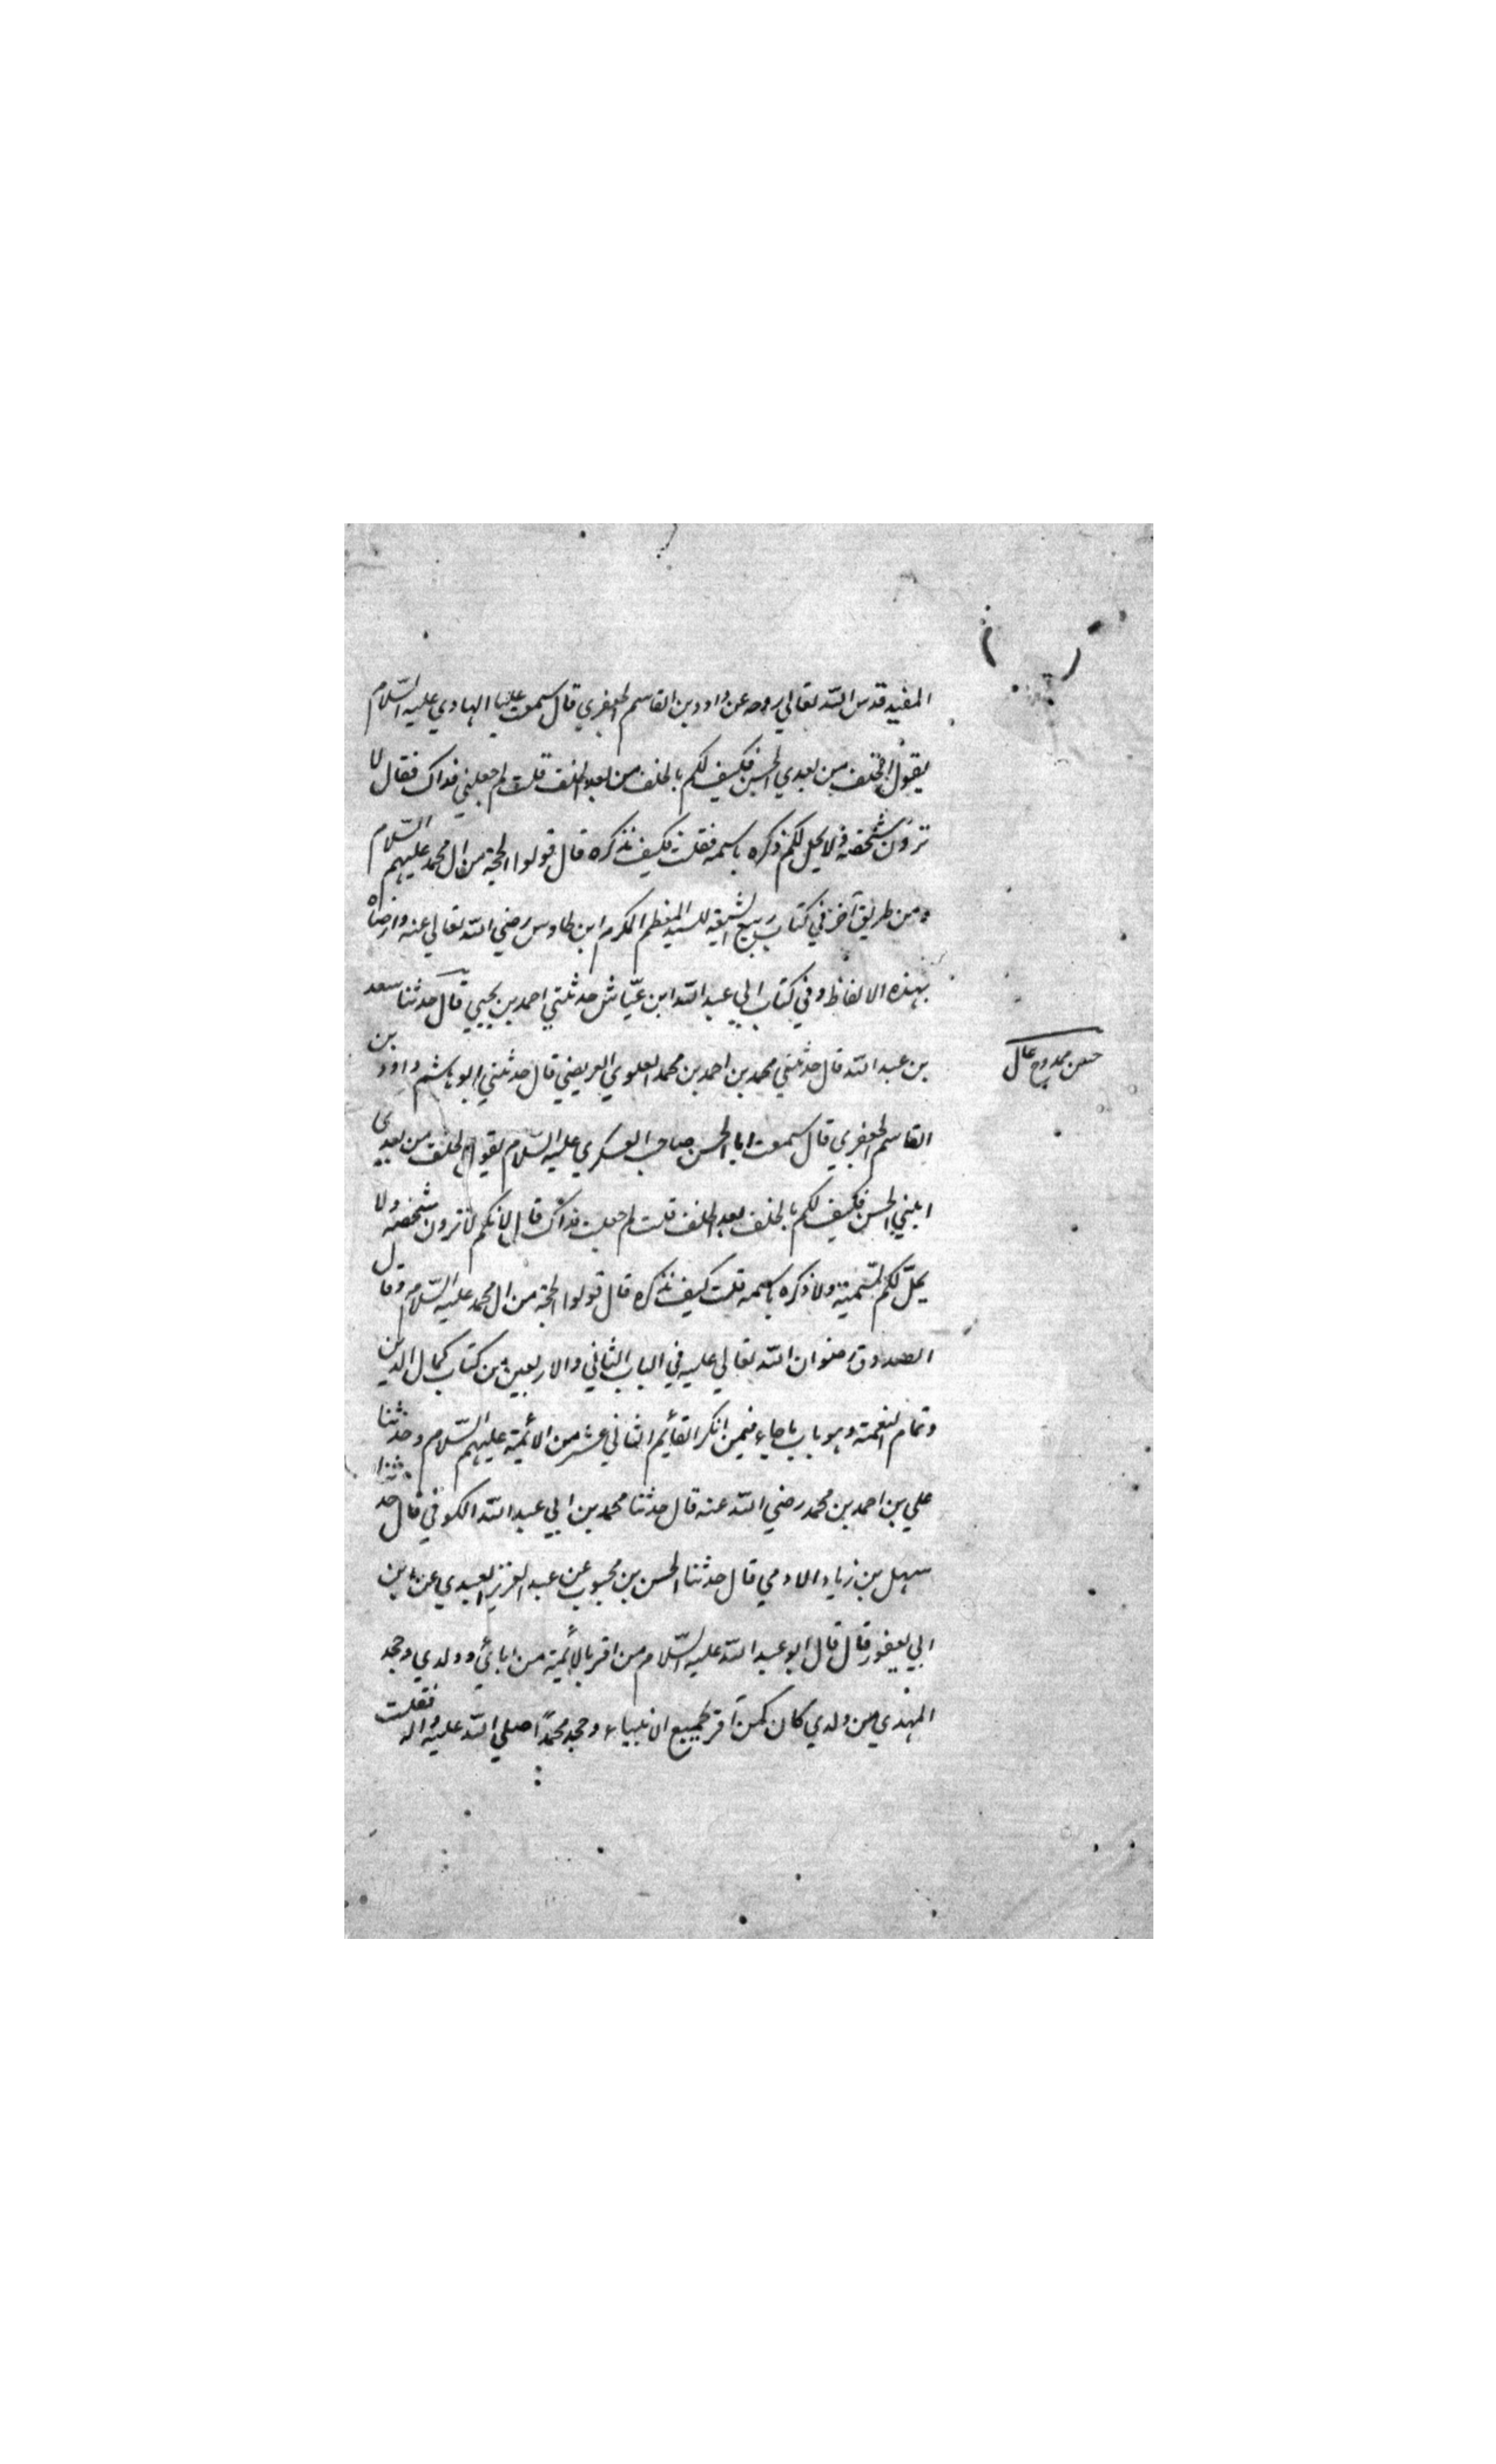 المفيد قدس الله تعالي روحه عن داود بن القاسم الجعفري قال سمعت عليا الهادي عليه السّلام
يقول الخلف من بعدي الحسن فكيف لكم بالخلف من بعد الخلف قلت لم جعلني فداك فقال لا
ترون شخصه ولا يحل لكم ذكره باسمه فقلت فكيف نذكره قال قولوا الحجة من ال محمد عليهم السّلام
ومن طريق آخر في كتاب ربيع الشيعة للسيد المعظم المكرم ابن طاوس رضي الله تعالي عنه وارضاه
بهذه الالفاظ وفي كتاب ابي عبد الله ابن عيّاش حدثني احمد بن يحيي قال حدثنا سعد
بن عبد الله قال حدثني محمد بن احمد بن محمد العلوي العريضي قال حدثني ابو هاشم داود بن
القاسم الجعفري قال سمعت ابا الحسن صاحب العسكري عليه السّلام يقول الخلف من بعدي
ابني الحسن فكيف لكم بالخلف بعد الخلف قلت لم جعلت فداك قال لانكم لا ترون شخصه ولا
يحلّ لكم تسميته ولا ذكره باسمه قلت كيف نذكره قال قولوا الحجة من ال محمد عليه السّلام وقال
الصدوق رضوان الله تعالي عليه في الباب الثاني والاربعين من كتاب كمال الدين
وتمام النعمة وهو باب ما جاء فيمن انكر القائيم الثاني عشر من الأئمية عليهم السّلام وحدثنا
علي بن احمد بن محمد رضي الله عنه قال حدثنا محمد بن ابي عبد الله الكوفي قال حدثنا
سهل بن زياد الادمي قال حدثنا الحسن بن محبوب عن عبد العزيز العبدي عن ابن
ابي يعفور قال قال ابو عبد الله عليه السّلام من اقر بالأئمية من ابائي وولدي وجحد
المهدي من ولدي كان كمن اقر بجميع الانبياء وجحد محمدًا صلي الله عليه واله
فقلت
ممدوح عال